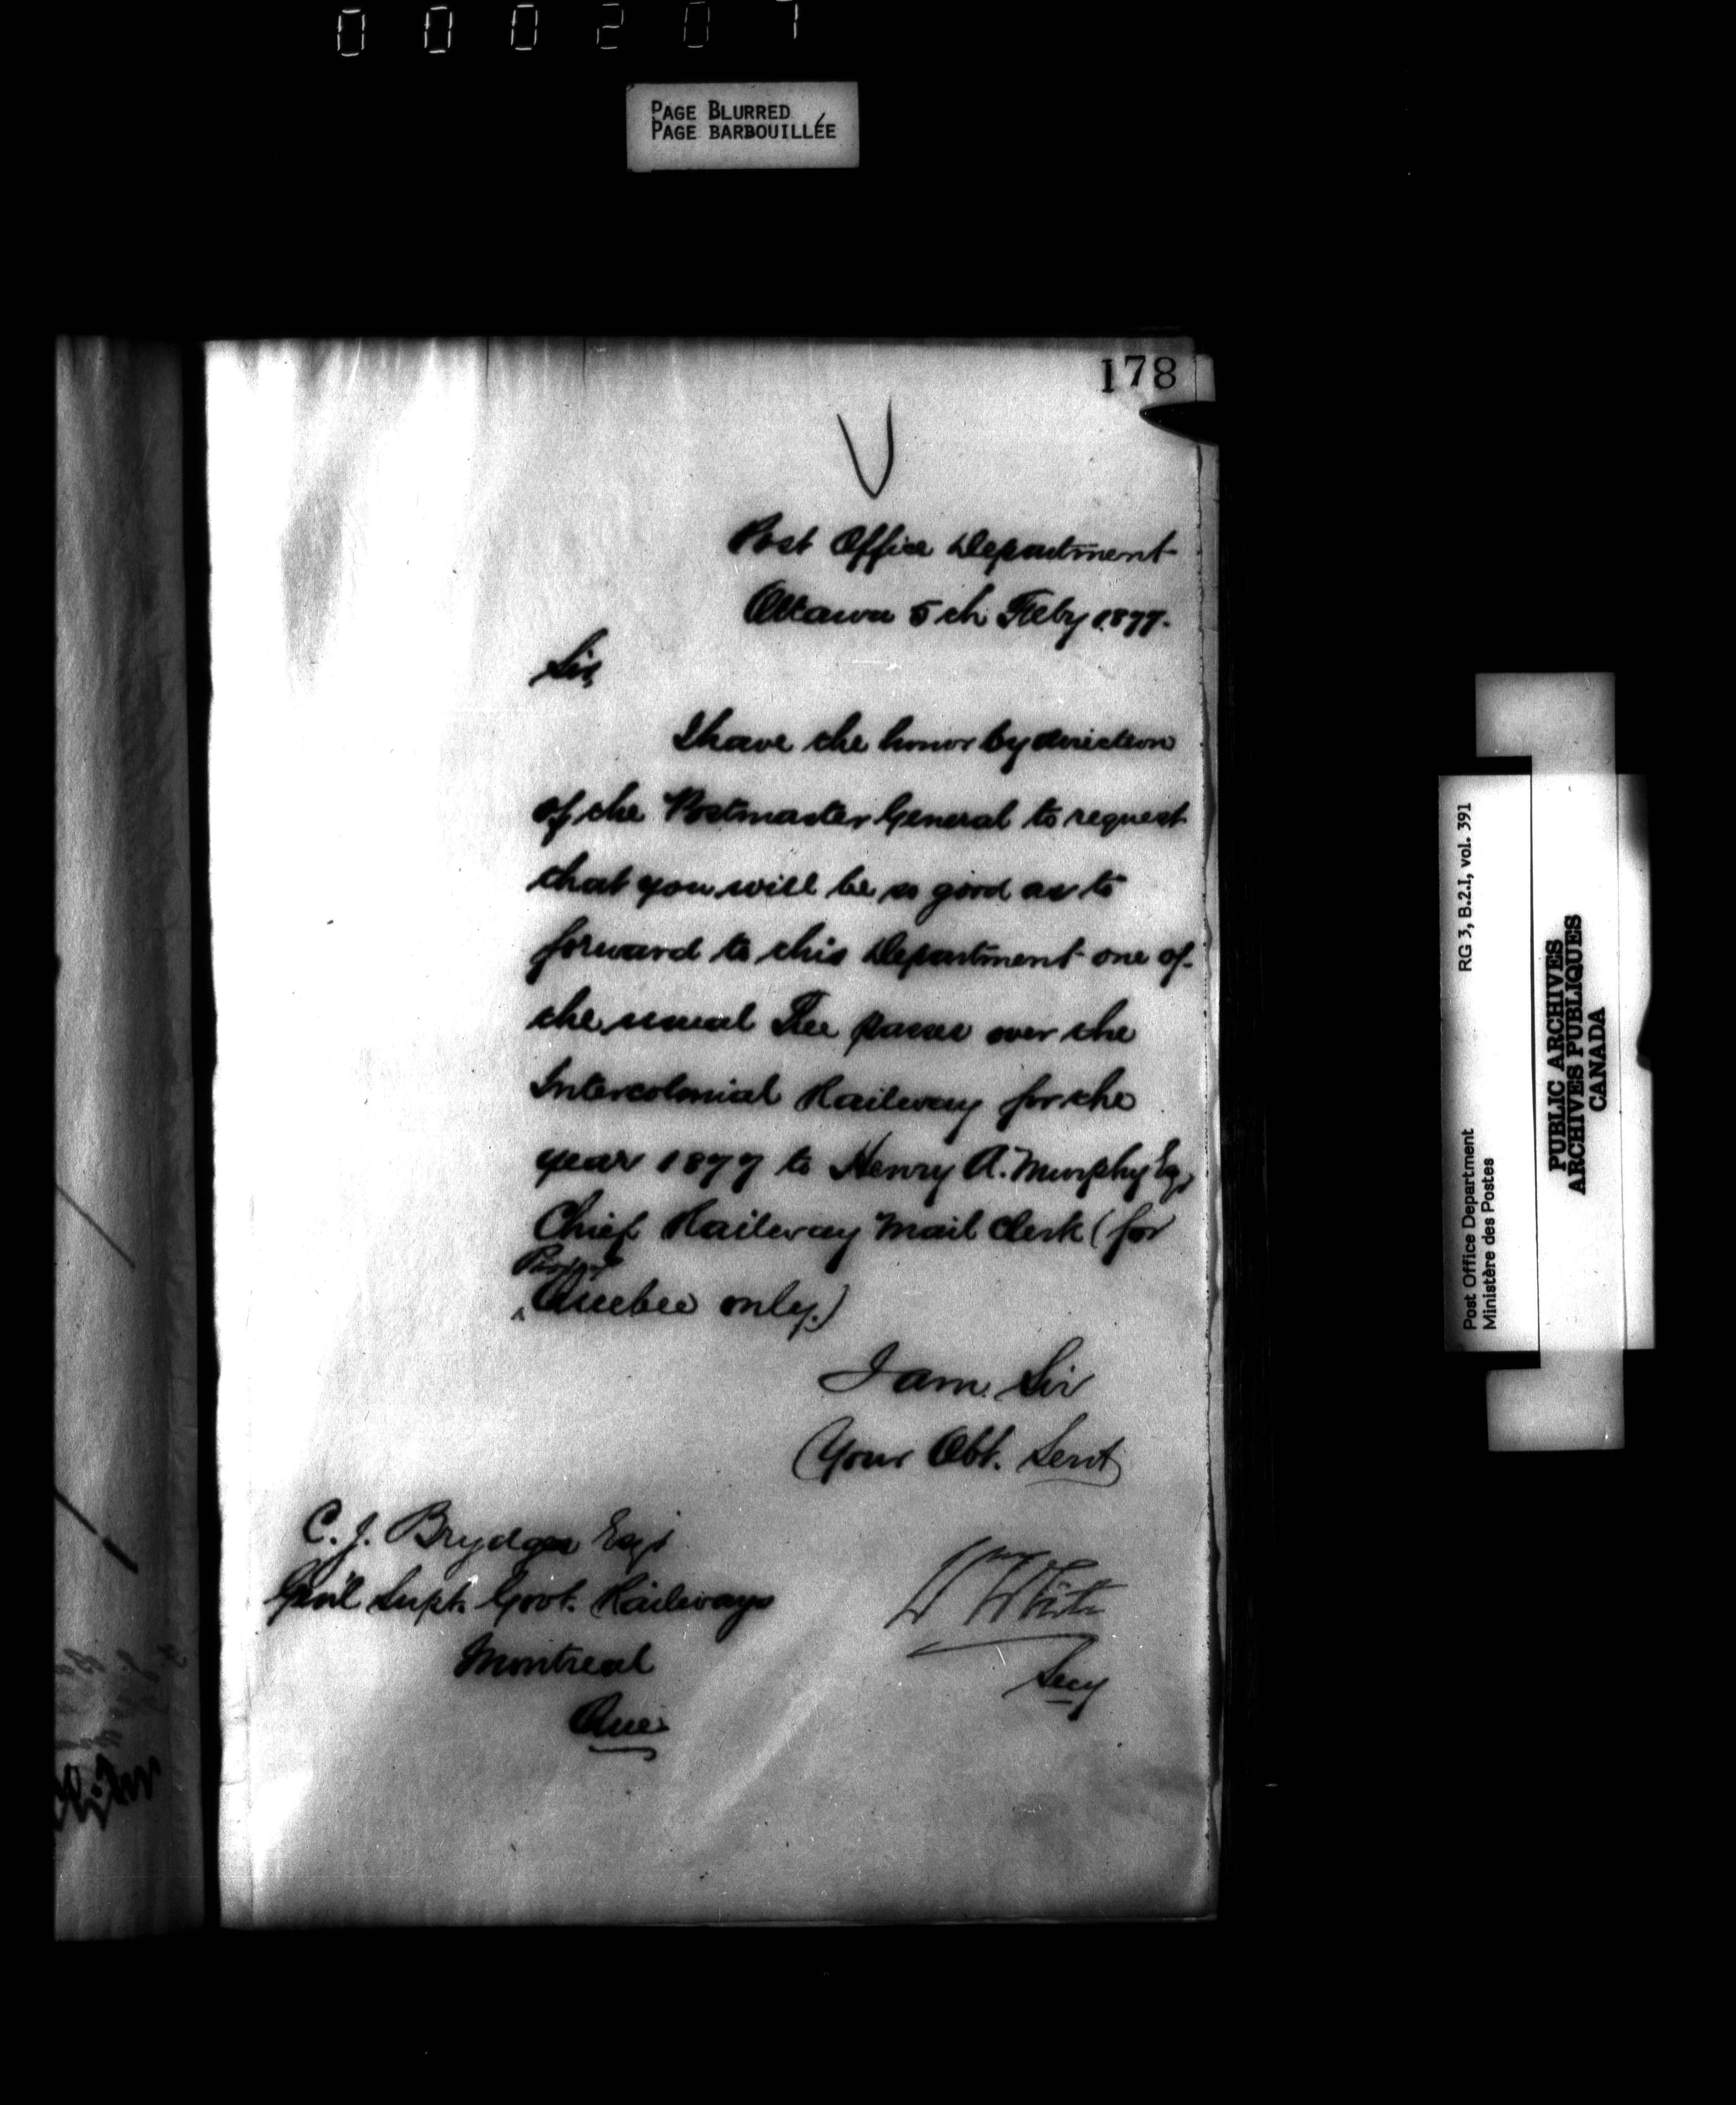 000207
PAGE BLURRED
PAGE BARBOUILLÉE
178
Post Office Department
Ottawa 5th Feby 1877.
Sir,
I have the honor by direction
of the Postmaster General to request
that you will be so good as to
forward to this Department one of
the usual Free passes over the
Intercolonial Railway for the
year 1877 to Henry A. Murphy Esq,
Chief Railway Mail Clerk (for
Quebec only.)
I am Sir
Your Obt. Servt
C. J. Brydges Esqr
Gen'l Supt. Govt. Railways
Montreal
Que
W White
Secy
RG 3, B.2.I, vol. 391
Post Office Department
Ministère des Postes
PUBLIC ARCHIVES
ARCHIVES PUBLIQUES
CANADA